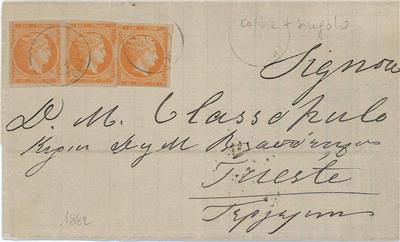 coppia + singolo
Signori
D. M. Classopulo
Κύριον Δ χ Μ
Trieste
Τεργέστη
1882